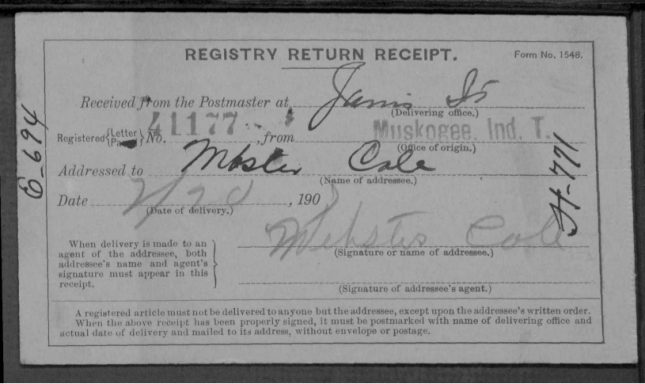 REGISTRY RETURN RECEIPT. Form No. 1548.
Received from the Postmaster at
(Delivering office.)
Registered {Letter No. 41177, from Muskogee, Ind. T.
(Office of origin.)
Addressed to Webster Cole
(Name of addressee.)
Date 2/20, 190
(Date of delivery.)
Webster Cole
(Signature or name of addressee.)
When delivery is made to an
agent of the addressee, both
addressee's name and agent's
signature must appear in this
receipt.
(Signature of addressee's agent.)
A registered article must not be delivered to anyone but the addressee, except upon the addressee's written order.
When the above receipt has been properly signed, it must be postmarked with name of delivering office and
actual date of delivery and mailed to its address, without envelope or postage.
E-694
H-771